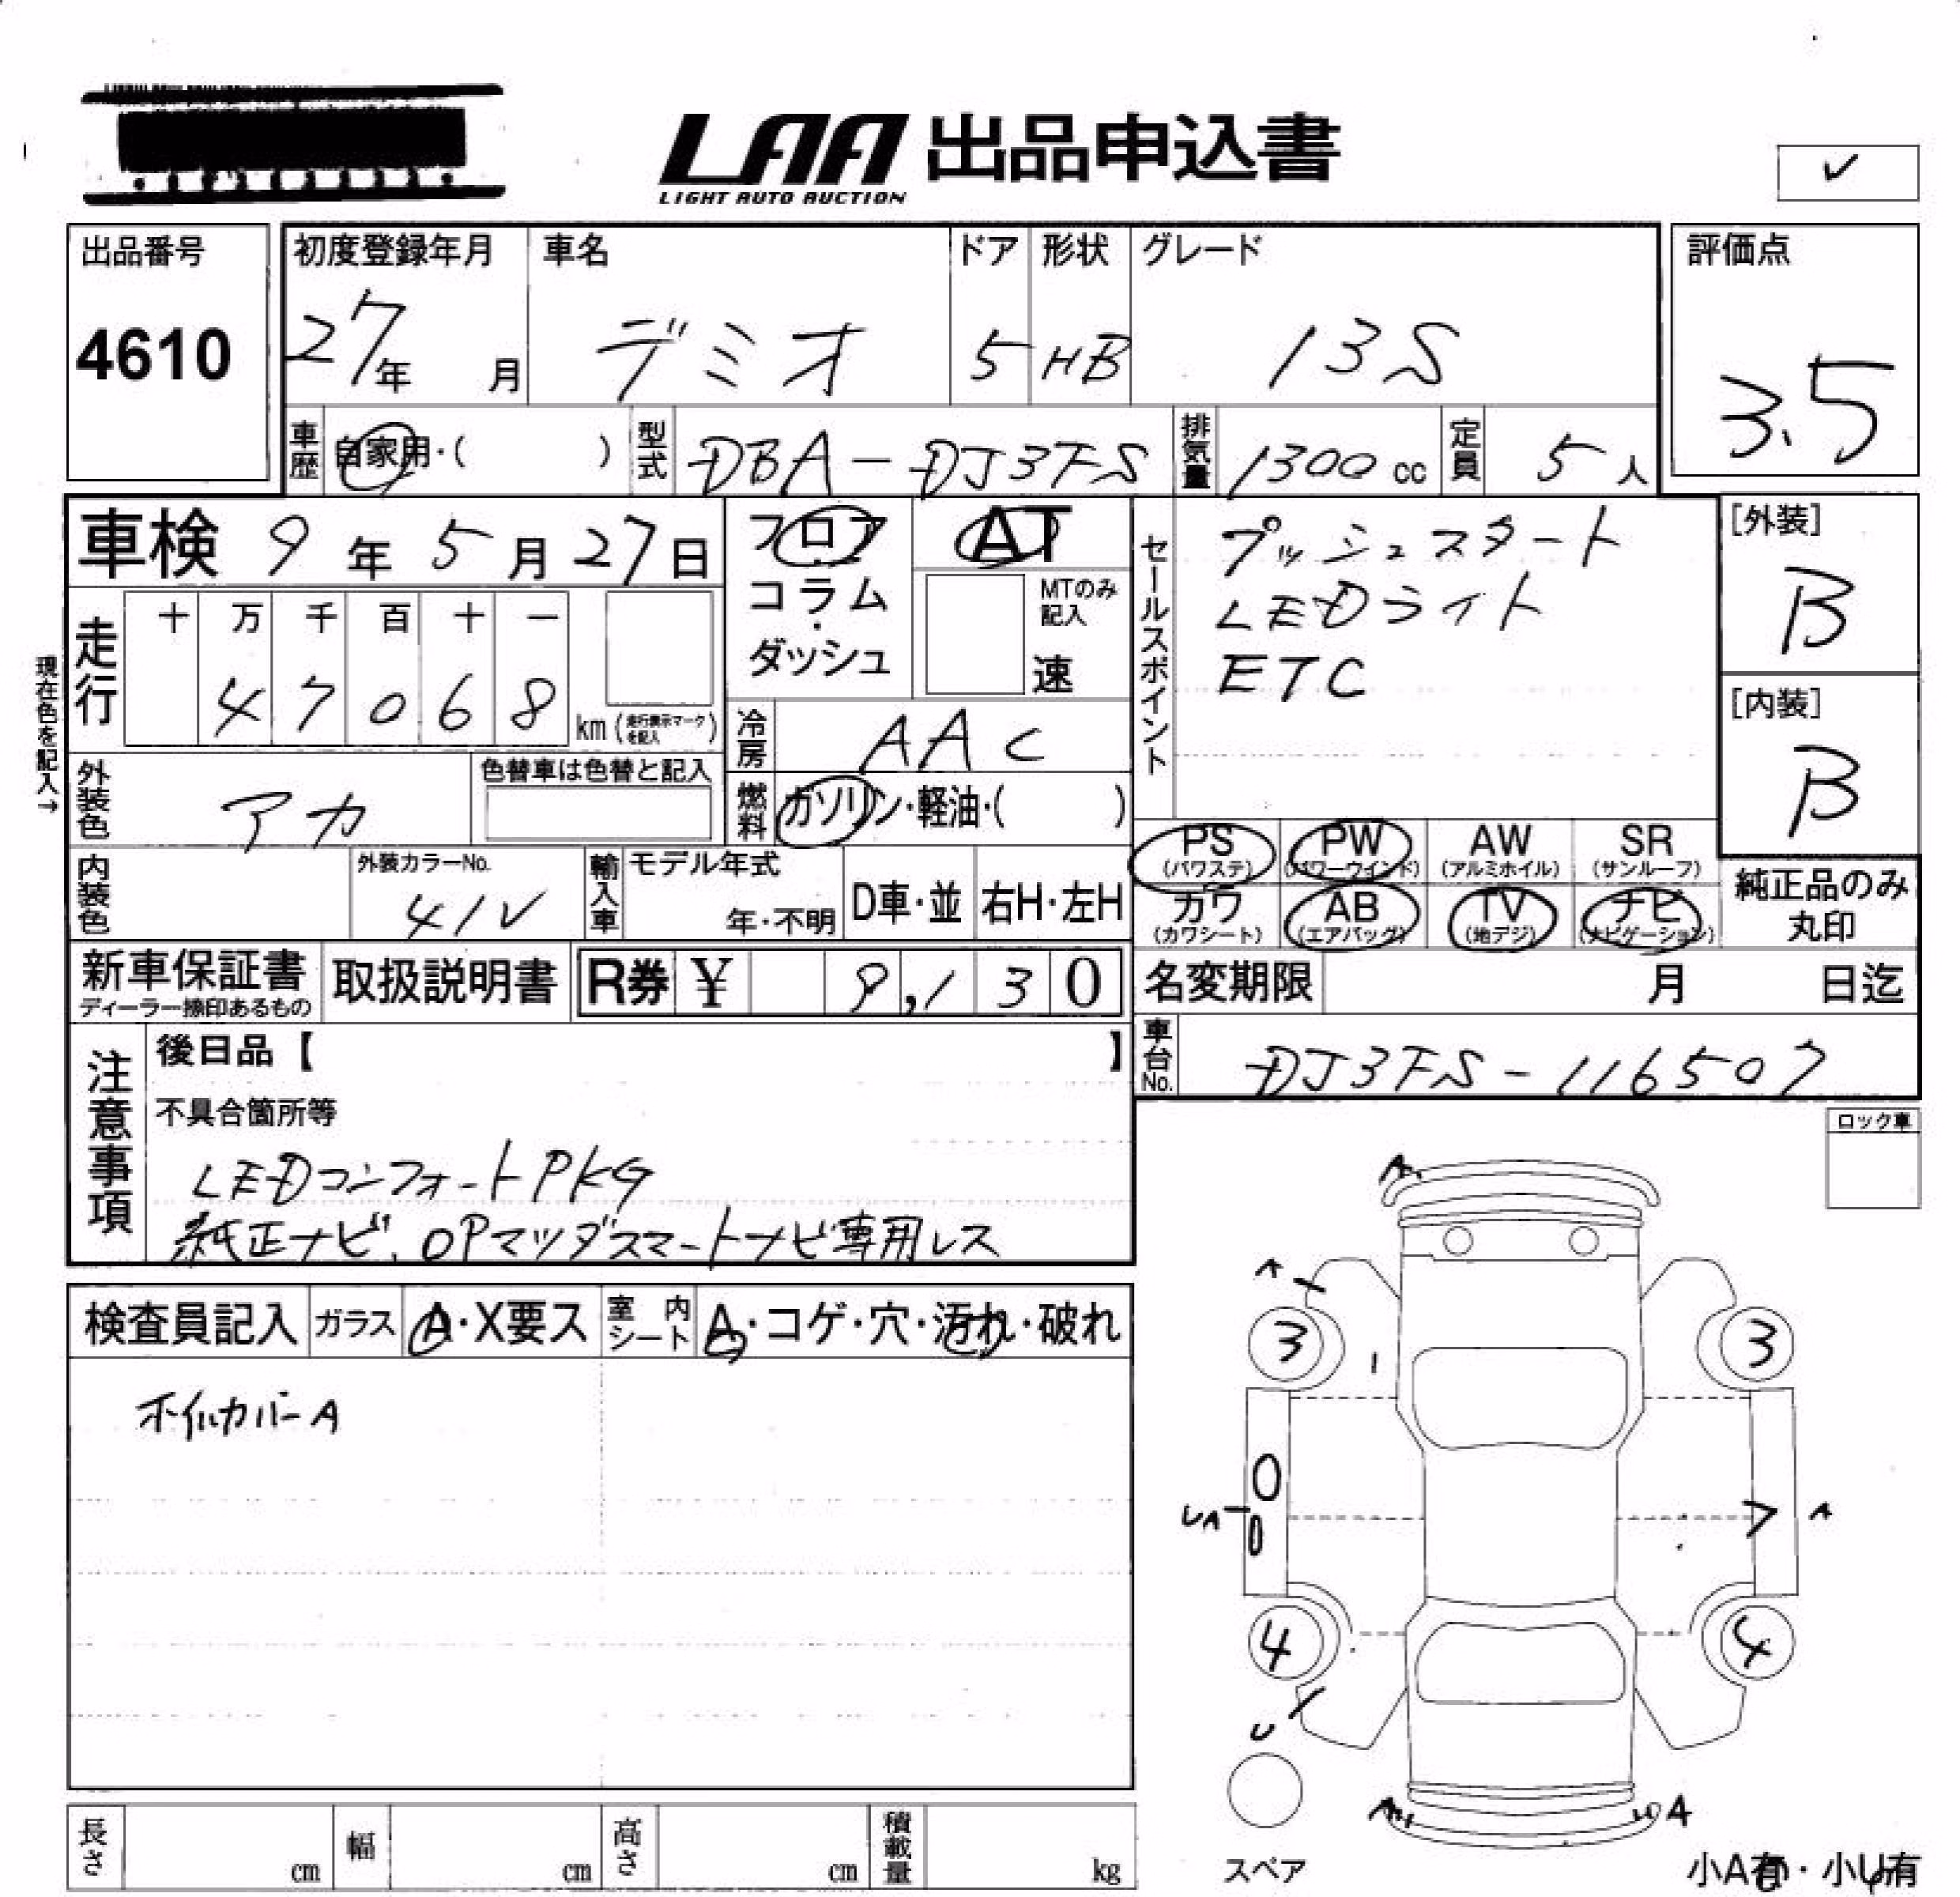 LAA 出品申込書
LIGHT AUTO AUCTION
✓
出品番号
4610
初度登録年月
27年 月
車名
デミオ
ドア
5
形状
HB
グレード
13S
評価点
3.5
車歴 自家用・( )
型式 DBA-DJ3FS
排気量 1300 cc
定員 5 人
車検 9年 5月 27日
フロア・コラム・ダッシュ
AT
MTのみ記入
速
セールスポイント
プッシュスタート
LEDライト
ETC
[外装]
B
[内装]
B
現在色を記入→
走行
十 万 千 百 十 一
4 7 0 6 8 km (走行表示マークを記入)
冷房 AAC
外装色 アカ
色替車は色替と記入
燃料 ガソリン・軽油・( )
PS (パワステ) PW (パワーウインド) AW (アルミホイル) SR (サンルーフ)
カワ (カワシート) AB (エアバッグ) TV (地デジ) ナビ (ナビゲーション)
純正品のみ
丸印
内装色
外装カラーNo.
41V
輸入車
モデル年式
年・不明
D車・並
右H・左H
新車保証書
ディーラー捺印あるもの
取扱説明書
R券 ¥ 9,130
名変期限 月 日迄
車台No. DJ3FS-116507
注意事項
後日品【 】
不具合箇所等
LEDコンフォートPKG
純正ナビ、OPマツダスマートナビ専用レス
ロック車
検査員記入
ガラス A・X要ス
室内シート A・コゲ・穴・汚れ・破れ
ホイルカバーA
A
A
3 3
UA A
4 4
U
A A
スペア
長さ cm
幅 cm
高さ cm
積載量 kg
小A有・小U有